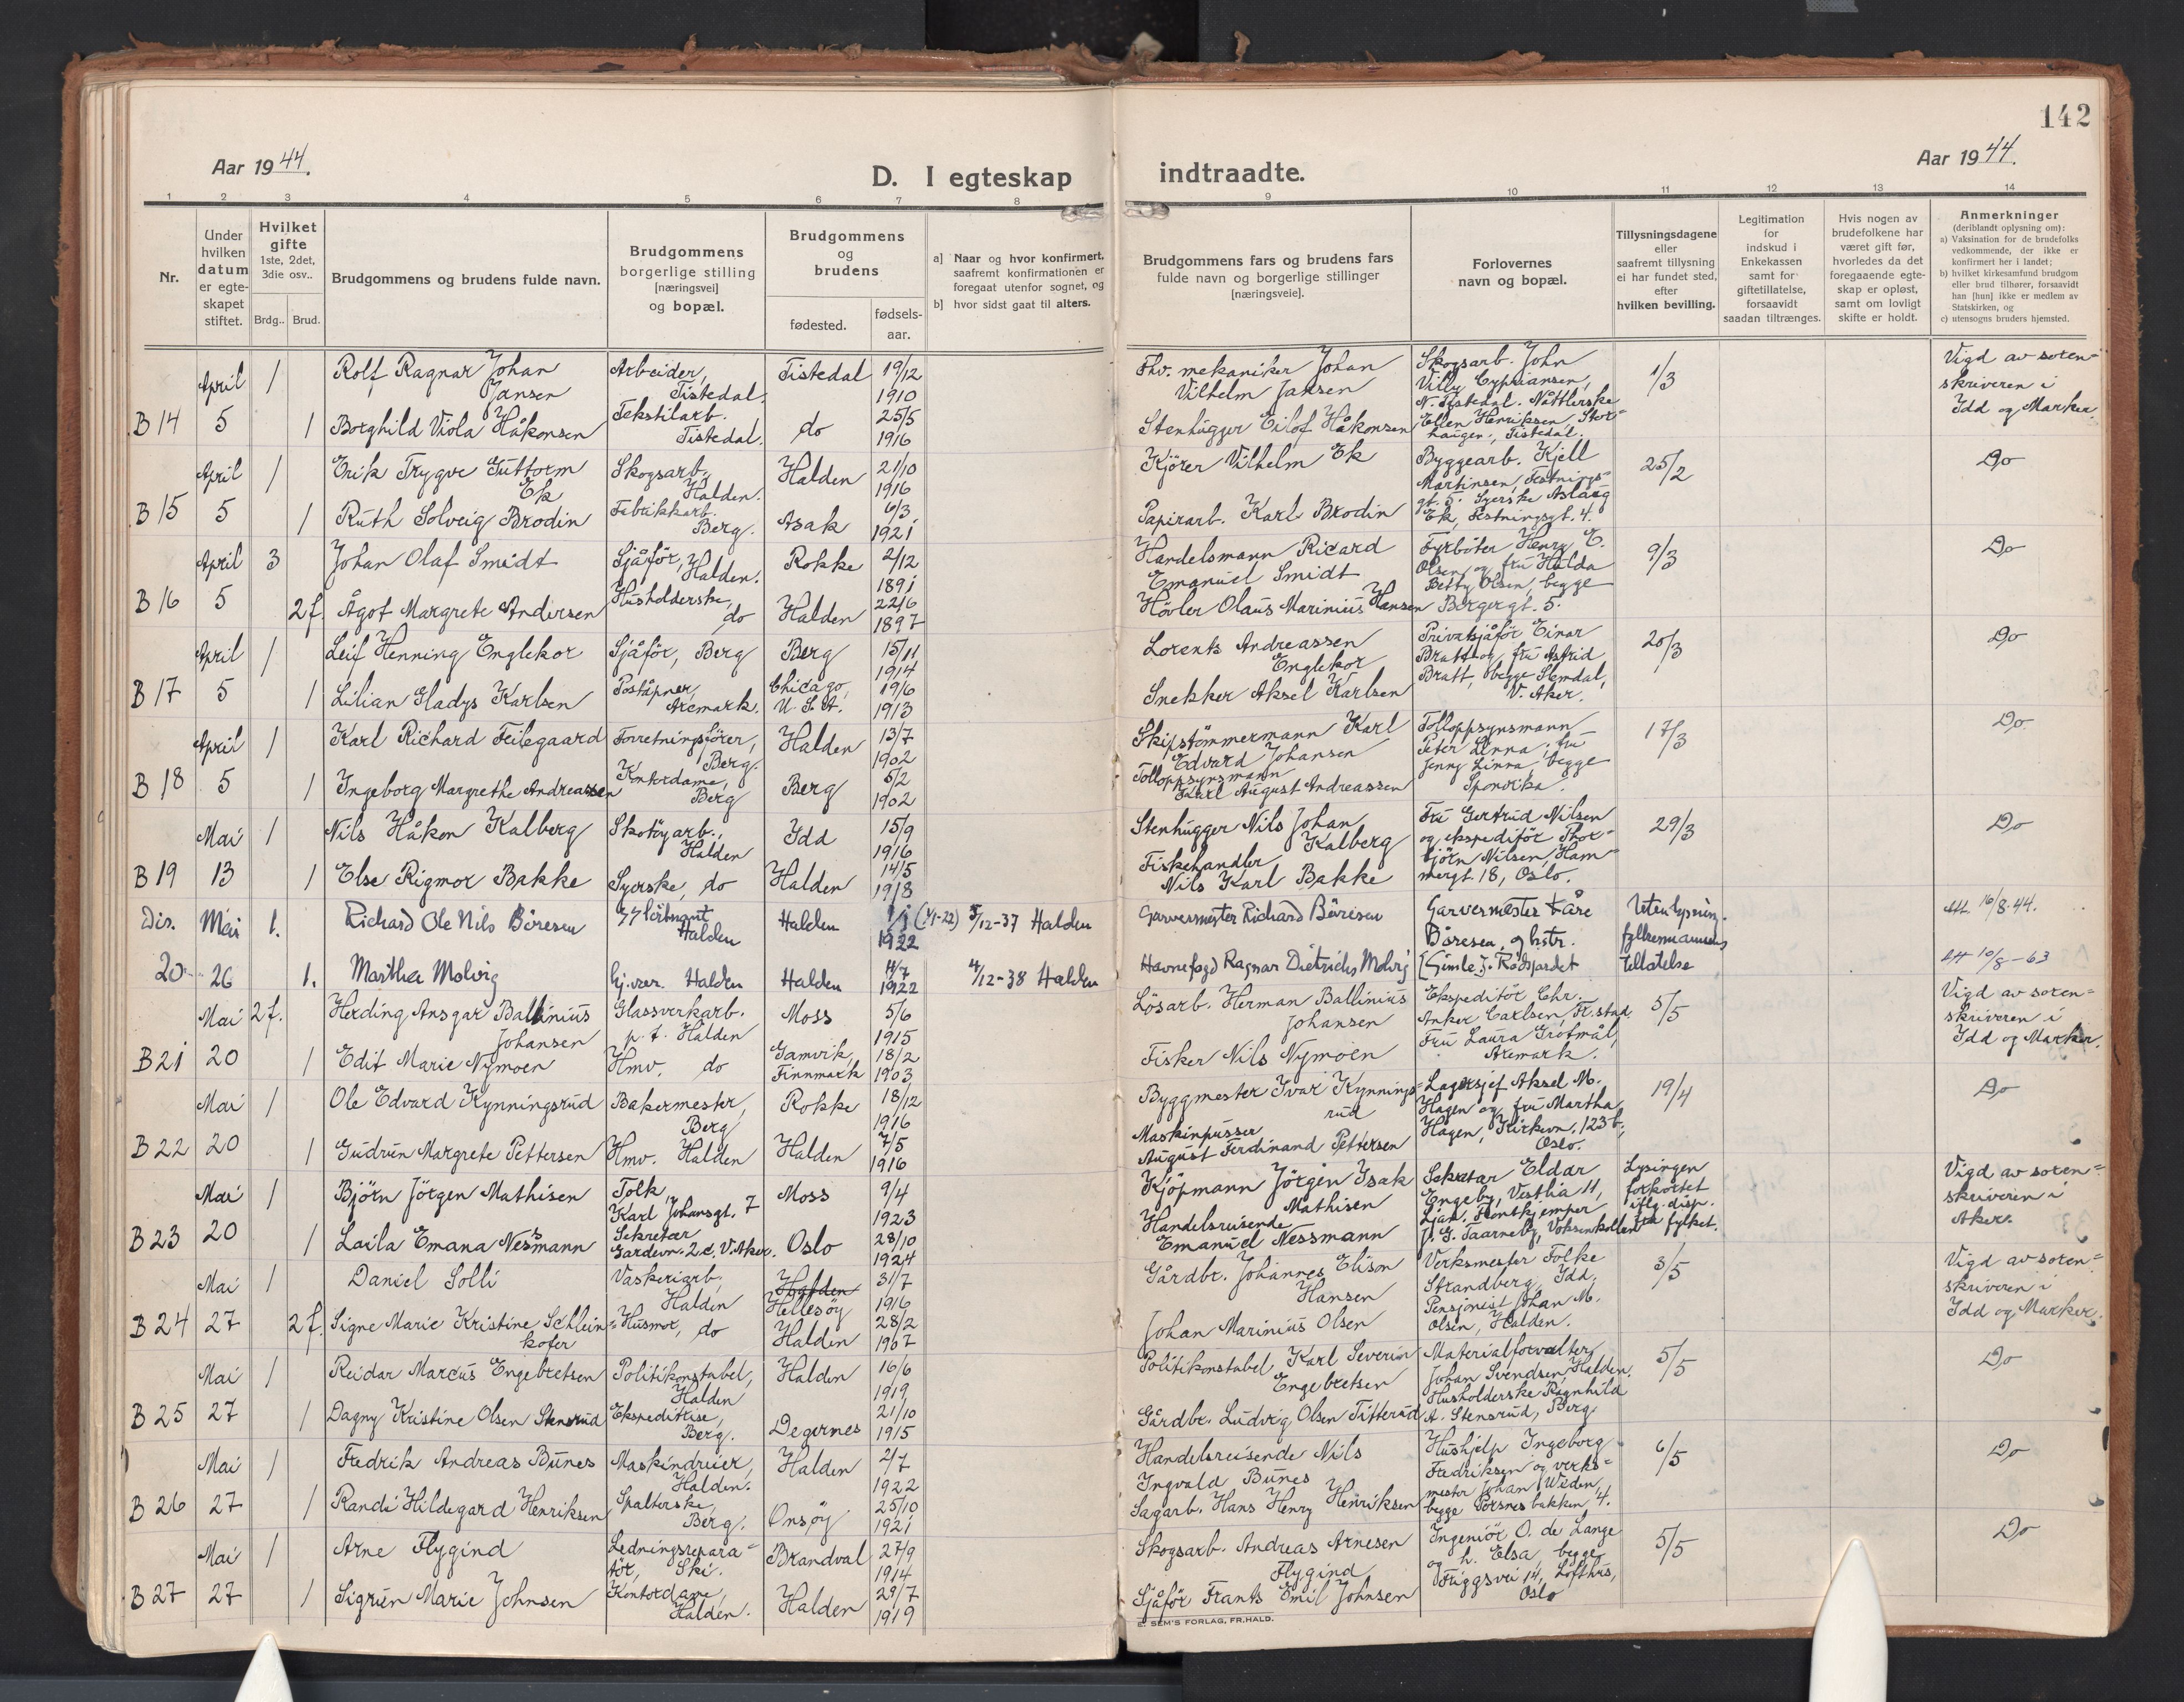 142
Aar 1944.
D. I egteskap indtraadte.
Aar 1944.
1 2 3 4 5 6 7 8 9 10 11 12 13 14
Nr.
Under hvilken datum er egteskapet stiftet.
Hvilket gifte 1ste, 2det, 3die osv..
Brdg.. Brud.
Brudgommens og brudens fulde navn.
Brudgommens borgerlige stilling [næringsvei] og bopæl.
Brudgommens og brudens
fødested.
fødselsaar.
a] Naar og hvor konfirmert, saafremt konfirmationen er foregaat utenfor sognet, og
b] hvor sidst gaat til alters.
Brudgommens fars og brudens fars fulde navn og borgerlige stillinger [næringsveie].
Forlovernes navn og bopæl.
Tillysningsdagene eller saafremt tillysning ei har fundet sted, efter hvilken bevilling.
Legitimation for indskud i Enkekassen samt for giftetillatelse, forsaavidt saadan tiltrænges.
Hvis nogen av brudefolkene har været gift før, hvorledes da det foregaaende egteskap er opløst, samt om lovligt skifte er holdt.
Anmerkninger (deriblandt oplysning om):
a) Vaksination for de brudefolks vedkommende, der ikke er konfirmert her i landet;
b) hvilket kirkesamfund brudgom eller brud tilhører, forsaavidt han [hun] ikke er medlem av Statskirken, og
c) utensogns bruders hjemsted.
April 1 Rolf Ragnar Johan Jansen Arbeider, Tistedal. Tistedal 19/12 1910 Fhv. mekaniker Johan Vilhelm Jansen Skogsarb. John Villy Cypriansen, N. Tistedal. Nåtlerske 1/3 Vigd av sorenskriveren i Idd og Marker.
B 14 5 1 Borghild Viola Håkonsen Tekstilarb. Tistedal. do 25/5 1916 Stenhugger Eilof Håkonsen Ellen Henriksen, Storhaugen, Tistedal.
April 1 Erik Trygve Guttorm Ek Skogsarb, Halden. Halden 21/10 1916 Kjörer Vilhelm Ek Byggearb. Kjell Martinsen, Festningsgt. 5. Syerske Aslaug 25/2 Do
B 15 5 1 Ruth Solveig Brodin Fabrikkarb. Berg. Asak 6/3 1921 Papirarb. Karl Brodin Ek, Festningsgt. 4.
April 3 Johan Olaf Smidt Sjåför, Halden. Rokke 2/12 1891 Handelsmann Ricard Emanuel Smidt Fyrböter Henry E. Olsen og fru Hulda 9/3 Do
B 16 5 2 f. Ågot Margrete Andersen Husholderske, do Halden 22/6 1897 Hövler Olaus Marinius Hansen Betty Olsen, begge Borgergt. 5.
April 1 Leif Henning Englekor Sjåför, Berg Berg 15/11 1914 Lorents Andreassen Englekor Privatsjåför Einar Bratt og fru Astrid 20/3 Do
B 17 5 1 Lilian Gladys Karlsen Poståpner, Aremark. Chicago, U. S. A. 19/6 1913 Snekker Aksel Karlsen Bratt, begge Slemdal, V. Aker.
April 1 Karl Richard Feilegaard Forretningsfører, Berg. Halden 13/7 1902 Skipstömmermann Karl Edvard Johansen Tolloppsynsmann Peter Linna, fru 17/3 Do
B 18 5 1 Ingeborg Margrethe Andreassen Kontordame, Berg Berg 5/2 1902 Tolloppsynsmann Karl August Andreassen Jenny Linna, begge Sponvika.
Mai 1 Nils Håkon Kalberg Skotöyarb., Halden Idd 15/9 1916 Stenhugger Nils Johan Kalberg Fru Gertrud Nilsen og ekspeditör Thor- 29/3 Do
B 19 13 1 Else Rigmor Bakke Syerske, do Halden 14/5 1918 Fiskehandler Nils Karl Bakke björn Nilsen, Hammergt. 18, Oslo.
Dis. Mai 1. Richard Ole Nils Böresen Halden Halden 1922 5/12-37 Halden Garvermester Richard Böresen Garvermester Kåre Böresen, og hstr. Uten lysning. fylkesmannens 16/8-44.
20 26 1. Marthea Molvig hj.vær. Halden Halden 11/7 1922 4/12-38 Halden Havnefogd Ragnar Dietrichs Molvig Rödsfjordet tillatelse 10/8-63
Mai 2 f. Herding Ansgar Ballinius Johansen Glassverkarb. p. t. Halden Moss 5/6 1915 Lösarb. Herman Ballinius Johansen Ekspeditör Chr. Anker Carlsen, Fr.stad. 5/5 Vigd av sorenskriveren i Idd og Marker.
B 21 20 1 Edit Marie Nymoen Hmv. do Gamvik, Finnmark 18/2 1903 Fisker Nils Nymoen Fru Laura Grotmål, Aremark.
Mai 1 Ole Edvard Kynningsrud Bakermester, Berg Rokke 18/12 1916 Byggmester Ivar Kynningsrud Lagersjef Aksel M. Hagen og fru Martha 19/4 Do
B 22 20 1 Gudrun Margrete Pettersen Hmv. Halden Halden 7/5 1916 Maskinpusser August Ferdinand Pettersen Hagen, Kirkevn. 123 b, Oslo.
Mai 1 Björn Jörgen Mathisen Tolk, Karl Johansgt. 7 Moss 9/4 1923 Kjöpmann Jörgen Isak Mathisen Sekretær Eldar Engeby, Vestlia 11, Lysingen forkortet iflg. disp. fra fylket. Vigd av sorenskriveren i Aker.
B 23 20 1 Laila Emana Nessmann Sekretær Gardevn. 2 c, V. Aker. Oslo 28/10 1924 Handelsreisende Emanuel Nessmann Ljan. Frontkjemper J. G. Taarneby, Voksenkollen
Mai 1 Daniel Solli Vaskeriarb, Halden Halden Hellesöy 31/7 1916 Gårdbr. Johannes Elison Hansen Verksmester Folke Strandberg, Idd, 3/5 Vigd av sorenskriveren i Idd og Marker.
B 24 27 2 f. Signe Marie Kristine Schleinkofer Husmor, do Halden 28/2 1907 Johan Marinius Olsen Pensjonist Johan M. Olsen, Halden.
Mai 1 Reidar Marcus Engebretsen Politikonstabel, Halden Halden 16/6 1919 Politikonstabel Karl Severin Engebretsen Materialforvalter Johan Svendsen, Halden. 5/5 Do
B 25 27 1 Dagny Kristine Olsen Stensrud Ekspeditrise, Berg. Degernes 21/10 1915 Gårdbr. Ludvig Olsen Titterud Husholderske Ragnhild A. Stensrud, Berg
Mai 1 Fredrik Andreas Bunes Maskindreier, Halden. Halden 2/7 1922 Handelsreisende Nils Ingvald Bunes Hushjelp Ingeborg Fredriksen og verks- 6/5 Do
B 26 27 1 Randi Hildegard Henriksen Spalterske, Berg. Onsöy 25/10 1921 Sagarb. Hans Henry Henriksen mester Johan Widen, begge Porsnesbakken 4.
Mai 1 Arne Flygind Ledningsreparatör, Ski. Brandval 27/9 1914 Skogsarb. Andreas Arnesen Flygind Ingeniör O. de Lange og h. Elsa, begge 5/5 Do
B 27 27 1 Sigrun Marie Johnsen Kontordame, Halden. Halden 29/7 1919 Sjåför Frants Emil Johnsen Friggsvei 14, Lofthus, Oslo
E. SEM'S FORLAG, FR.HALD.